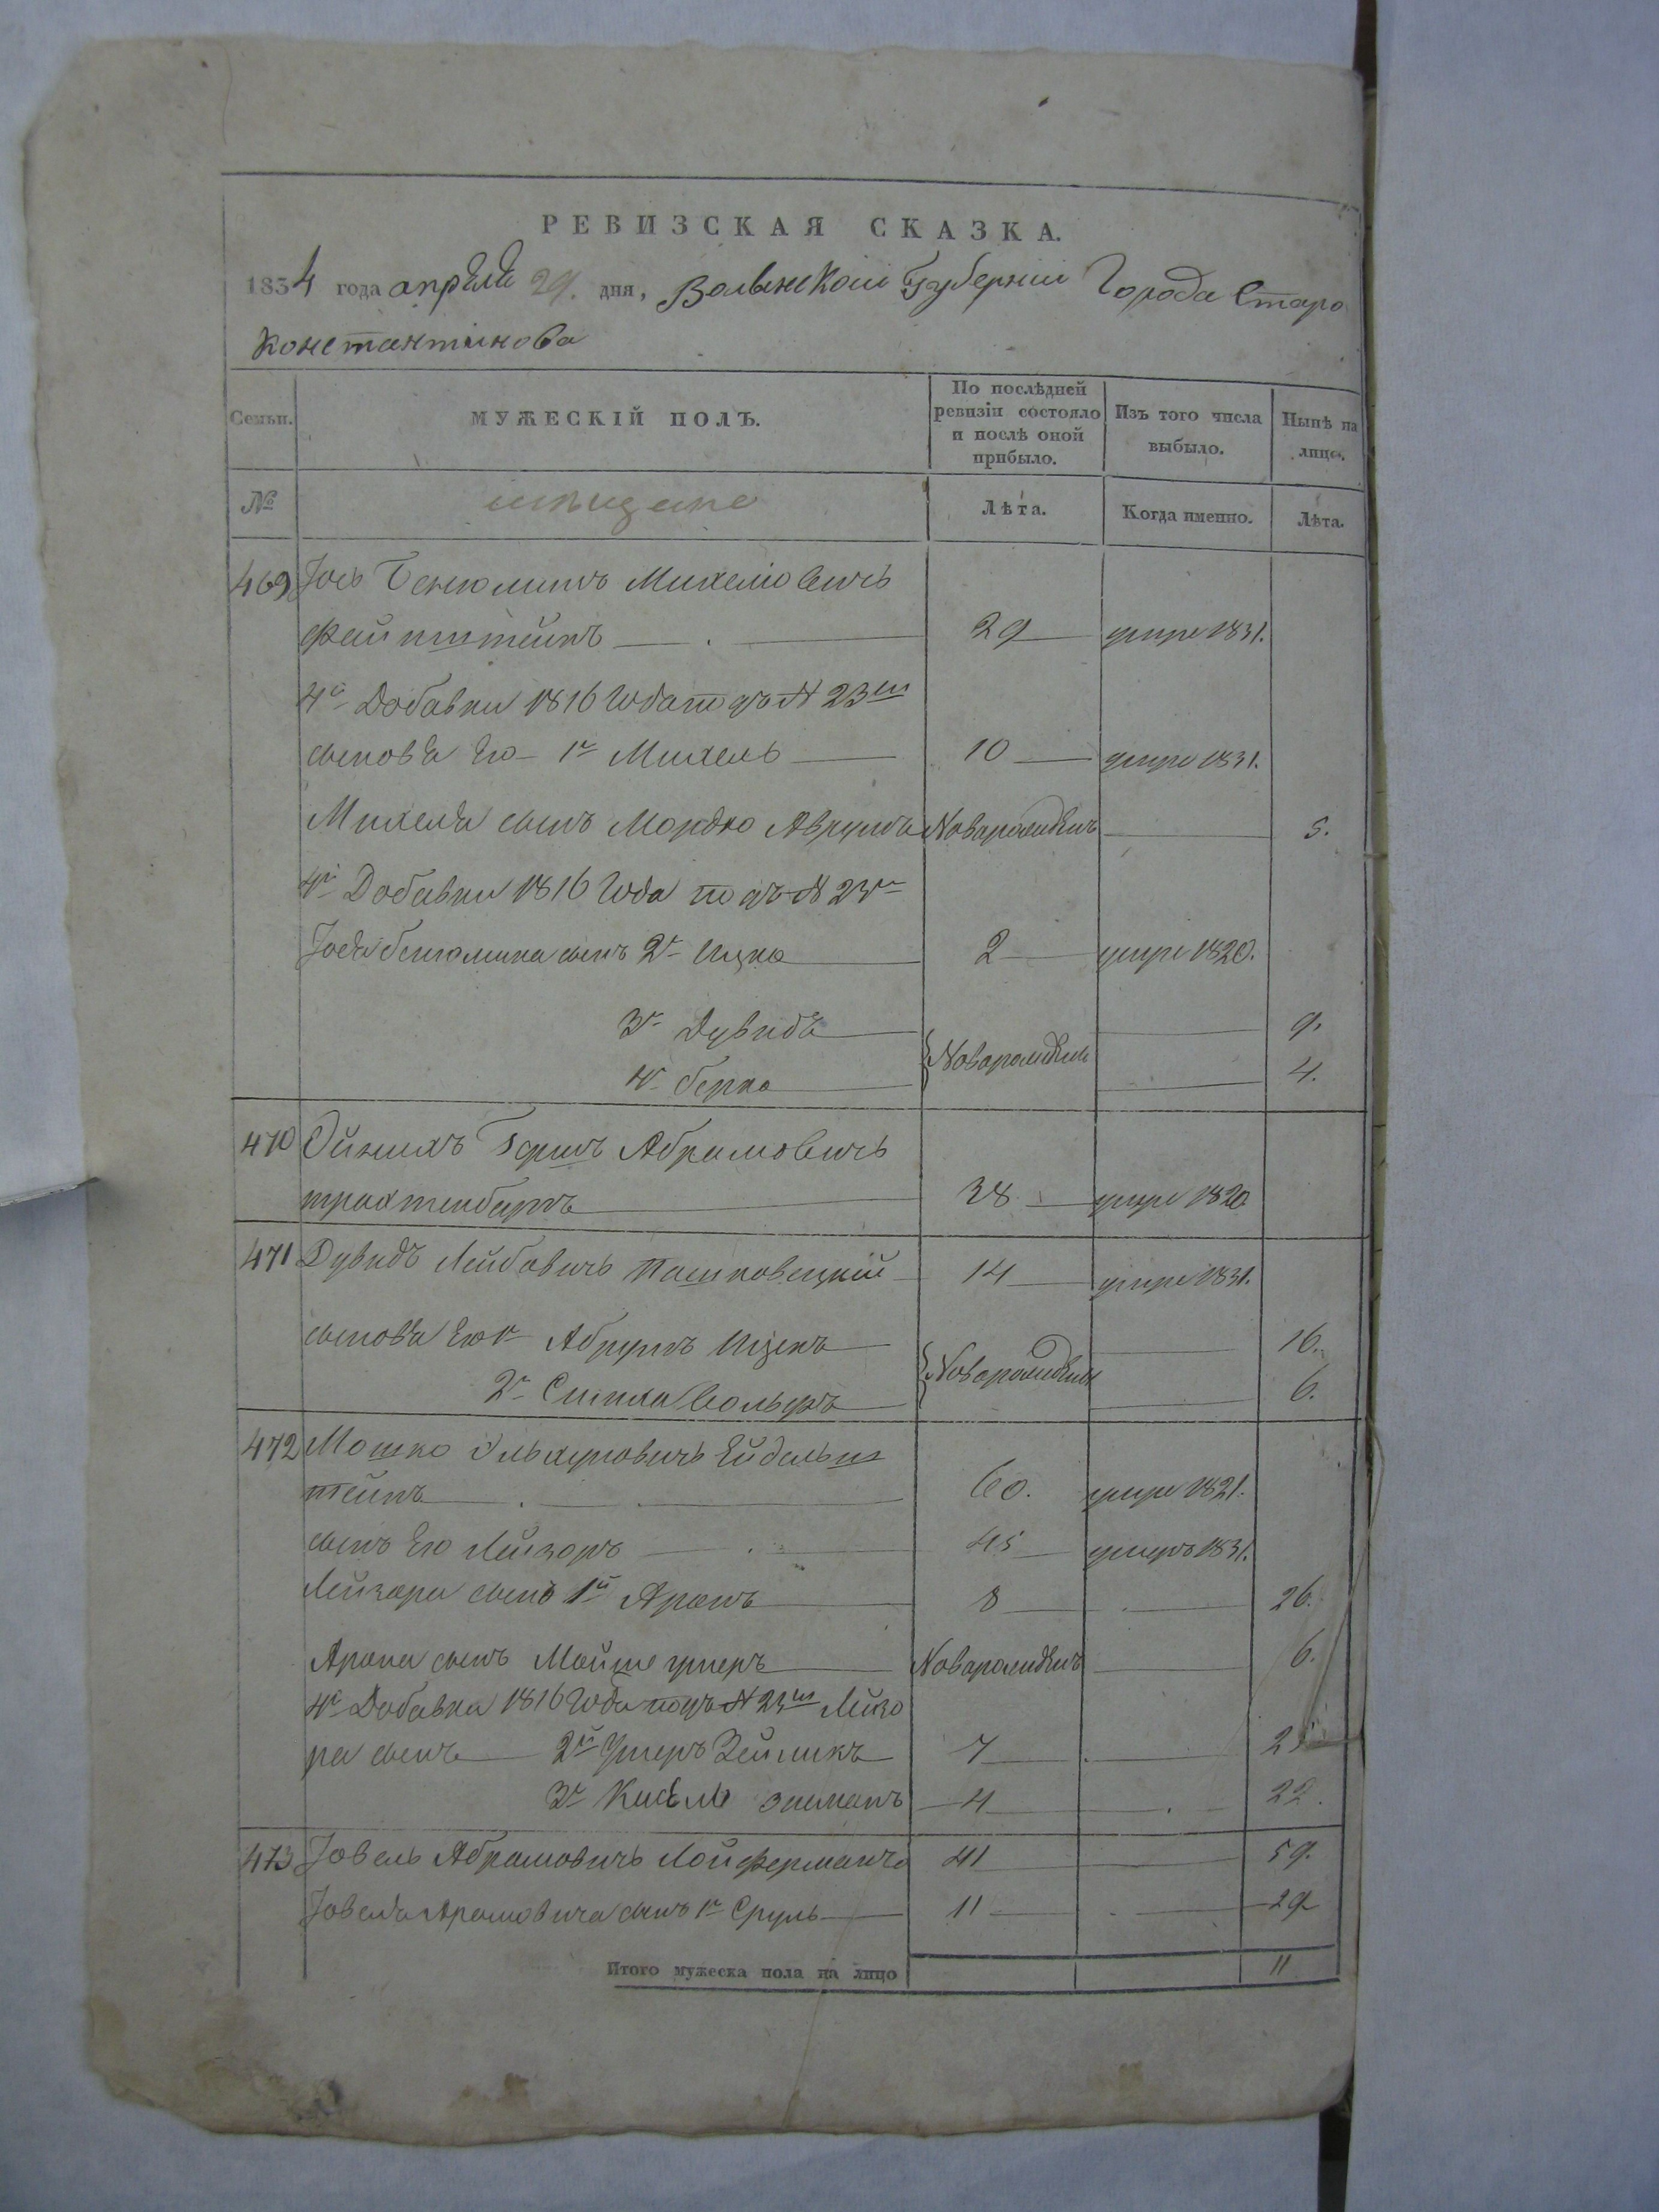 РЕВИЗСКАЯ СКАЗКА.
1834 года апрѣля 29. дня, Волынской Губерніи Города Старо
Константинова
Семьи. МУЖЕСКІЙ ПОЛЪ. По послѣдней ревизіи состояло и послѣ оной прибыло. Изъ того числа выбыло. Нынѣ на лицо.
№ мѣщане Лѣта. Когда именно. Лѣта.
469 Іось Бенюминъ Михелiовичъ
Файнштейнъ 29 умре 1831.
4й Добавки 1816 года подъ N 23м
сыновья Его 1й Михель 10 умре 1831.
Михеля сынъ Мордко Аврумъ Новорожденъ 5.
4й Добавки 1816 Года подъ N 23м
Іося Бенюмина сынъ 2й Ицко 2 умре 1820.
3й Дувидъ Новорожденны 9.
4й Берко 4.
470 Ойнихъ Гершъ Абрамовичъ
трахтенбаргъ 38 умре 1820
471 Дувидъ Лейбовичъ Пашковецкій 14 умре 1831.
сыновья Его 1й Абрумъ Ицекъ Новорожденны 16.
2й Симха Вольфъ 6.
472 Мошко Эльхуновичъ Ейдельш
тейнъ 60. умре 1821.
сынъ Его Лейзоръ 45 умеръ 1831.
Лейзора сынъ 1й Аронъ 8 26.
Арона сынъ Мойше умеръ Новорожденъ 6.
4й Добавки 1816 Года подъ N 23м Лейзо
ра сынъ 2й Умеръ Зейликъ 7 25
3й Кисель Зисманъ 4 22.
473 Іовель Абрамовичъ Лойферманъ 41 59.
Іовеля Арамовича сынъ 1й Сруль 11 29
Итого мужеска пола на лицо 11